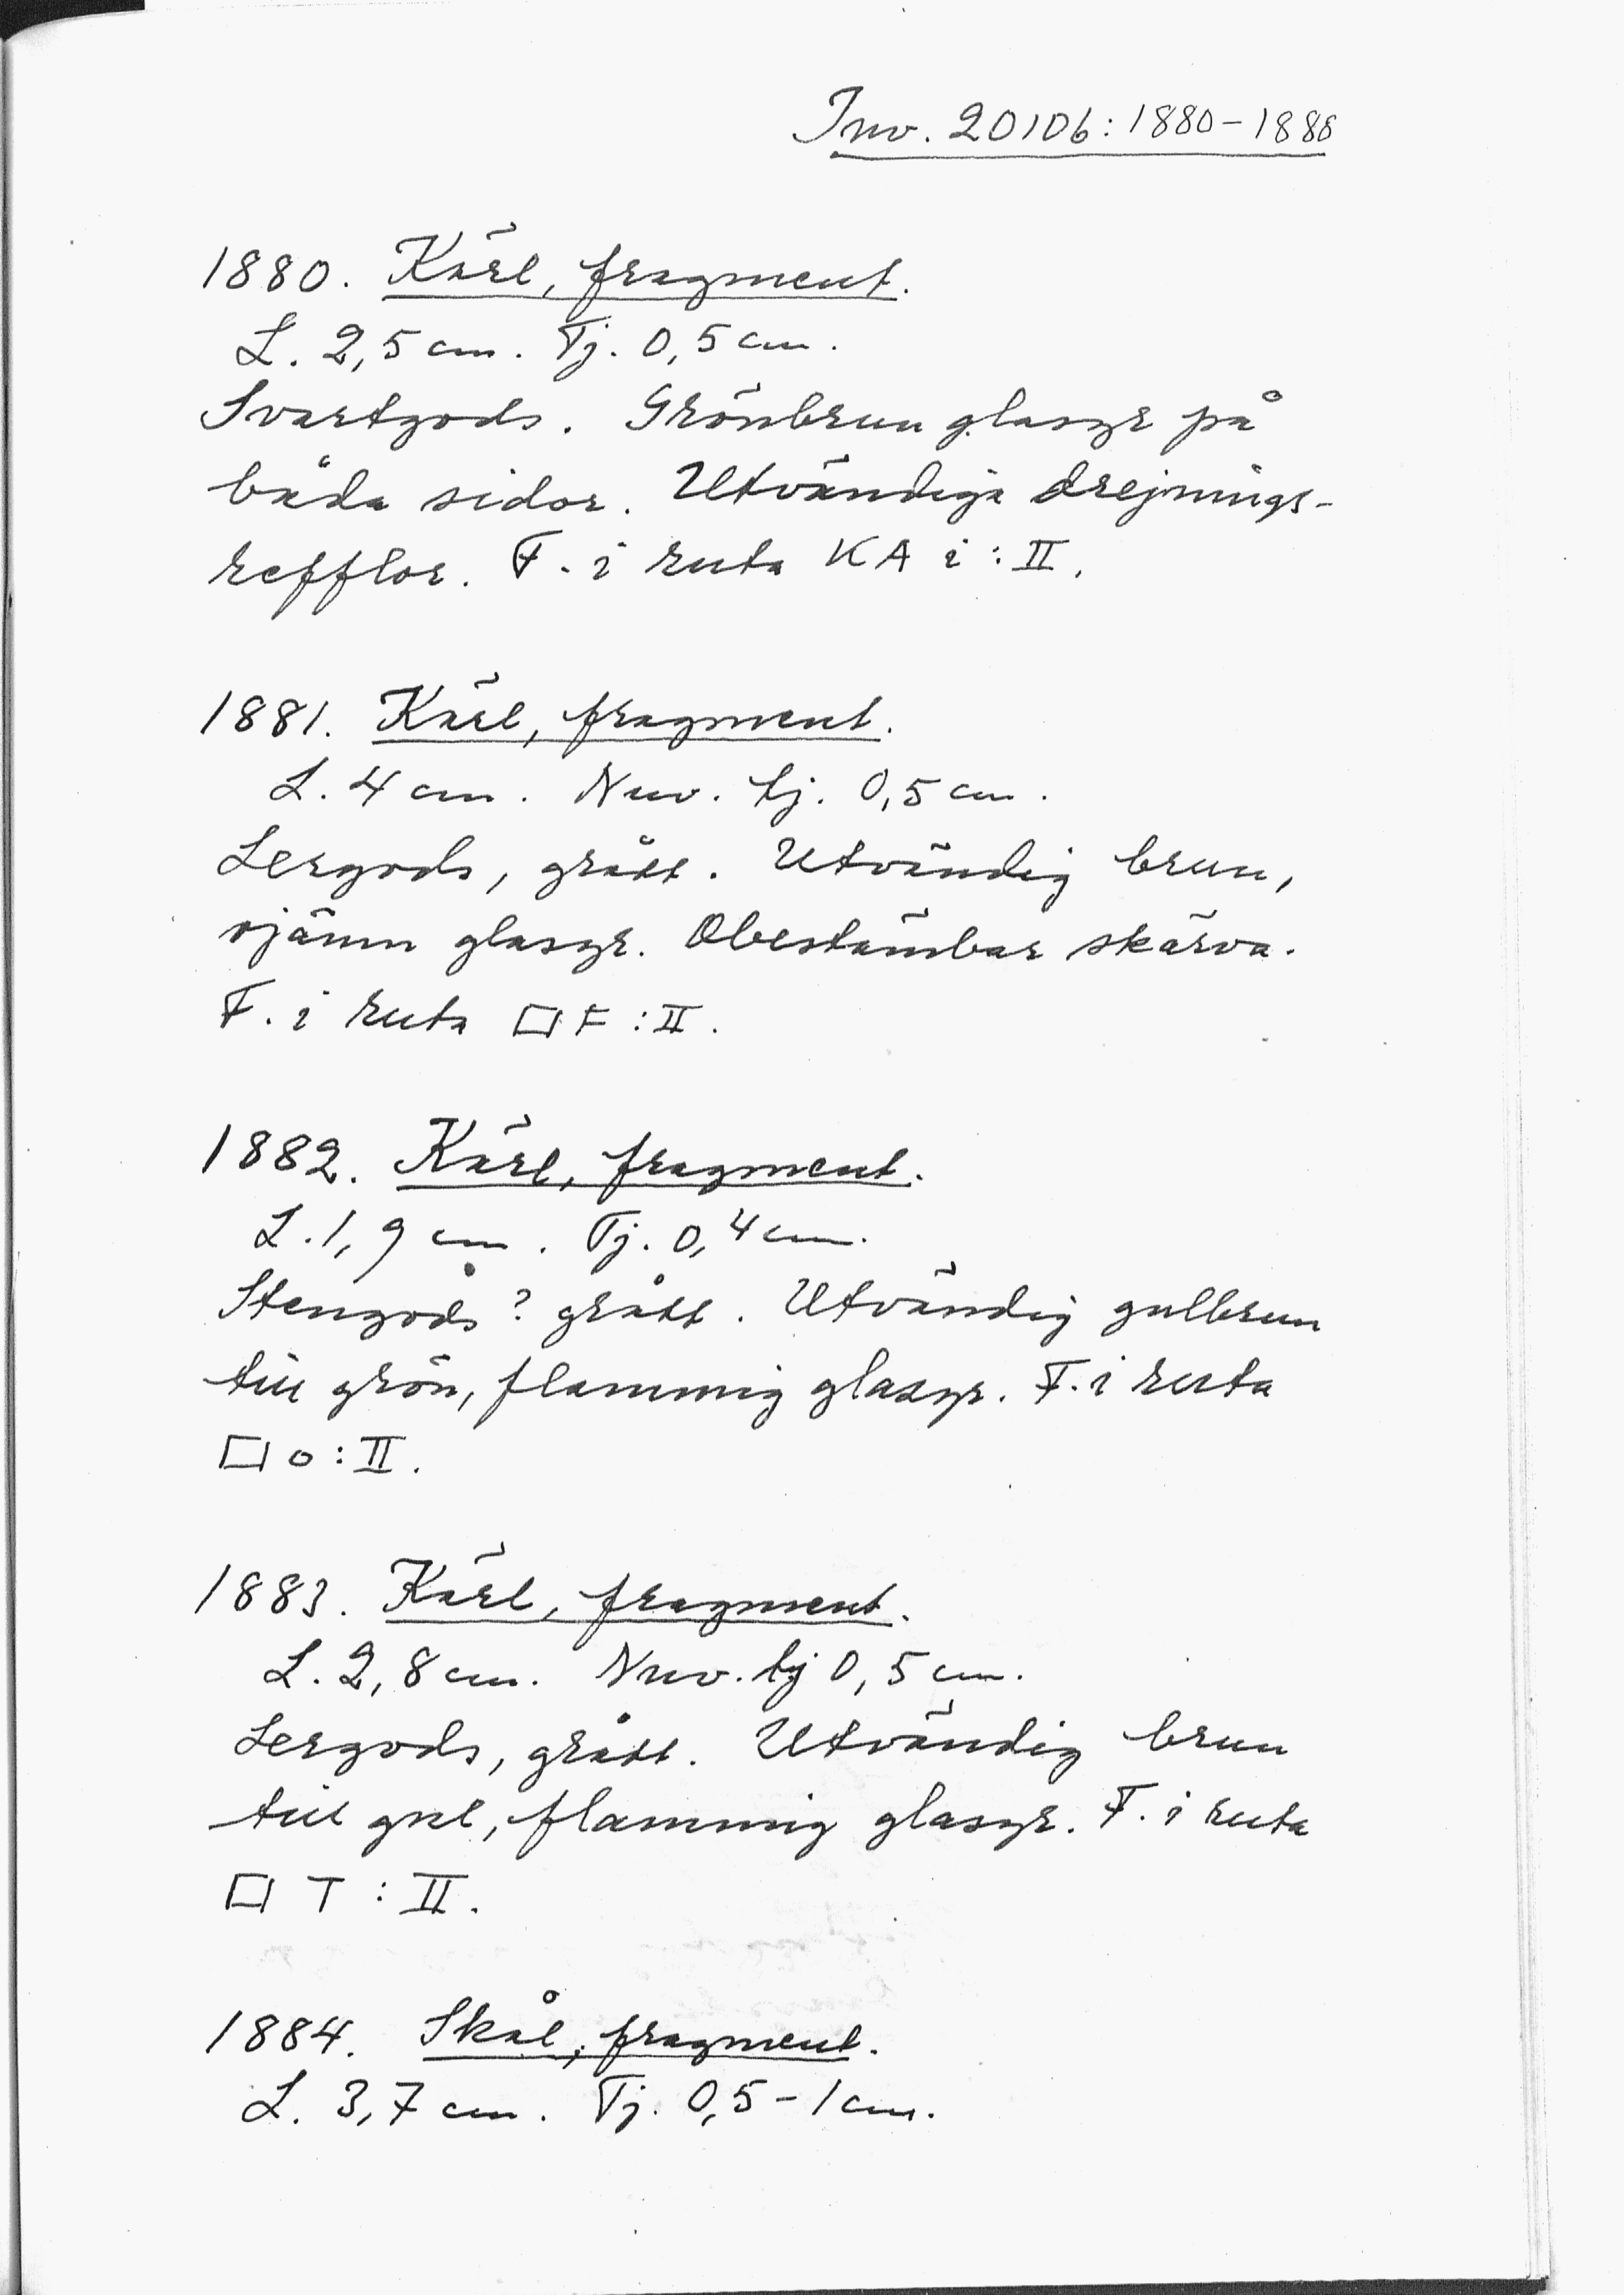 Inv. 20106:1880-1888
1880. Kärl, fragment.
L. 2,5 cm. Tj. 0,5 cm.
Svartgods. Grönbrun glasyr på
båda sidor. Utvändiga drejnings-
refflor. F. i ruta KA i:II.
1881. Kärl, fragment.
L. 4 cm. Nuv. tj. 0,5 cm.
Lergods, grått. Utvändig brun,
ojämn glasyr. Obestämbar skärva.
F. i ruta □ F:II.
1882. Kärl, fragment.
L. 1,9 cm. Tj. 0,4 cm.
Stengods? grått. Utvändig gulbrun
till grön, flammig glasyr. F. i ruta
□ o:II.
1883. Kärl, fragment.
L. 2,8 cm. Nuv. tj 0,5 cm.
Lergods, grått. Utvändig brun
till gul, flammig glasyr. F. i ruta
□ T:II.
1884. Skål, fragment.
L. 3,7 cm. Tj. 0,5-1 cm.